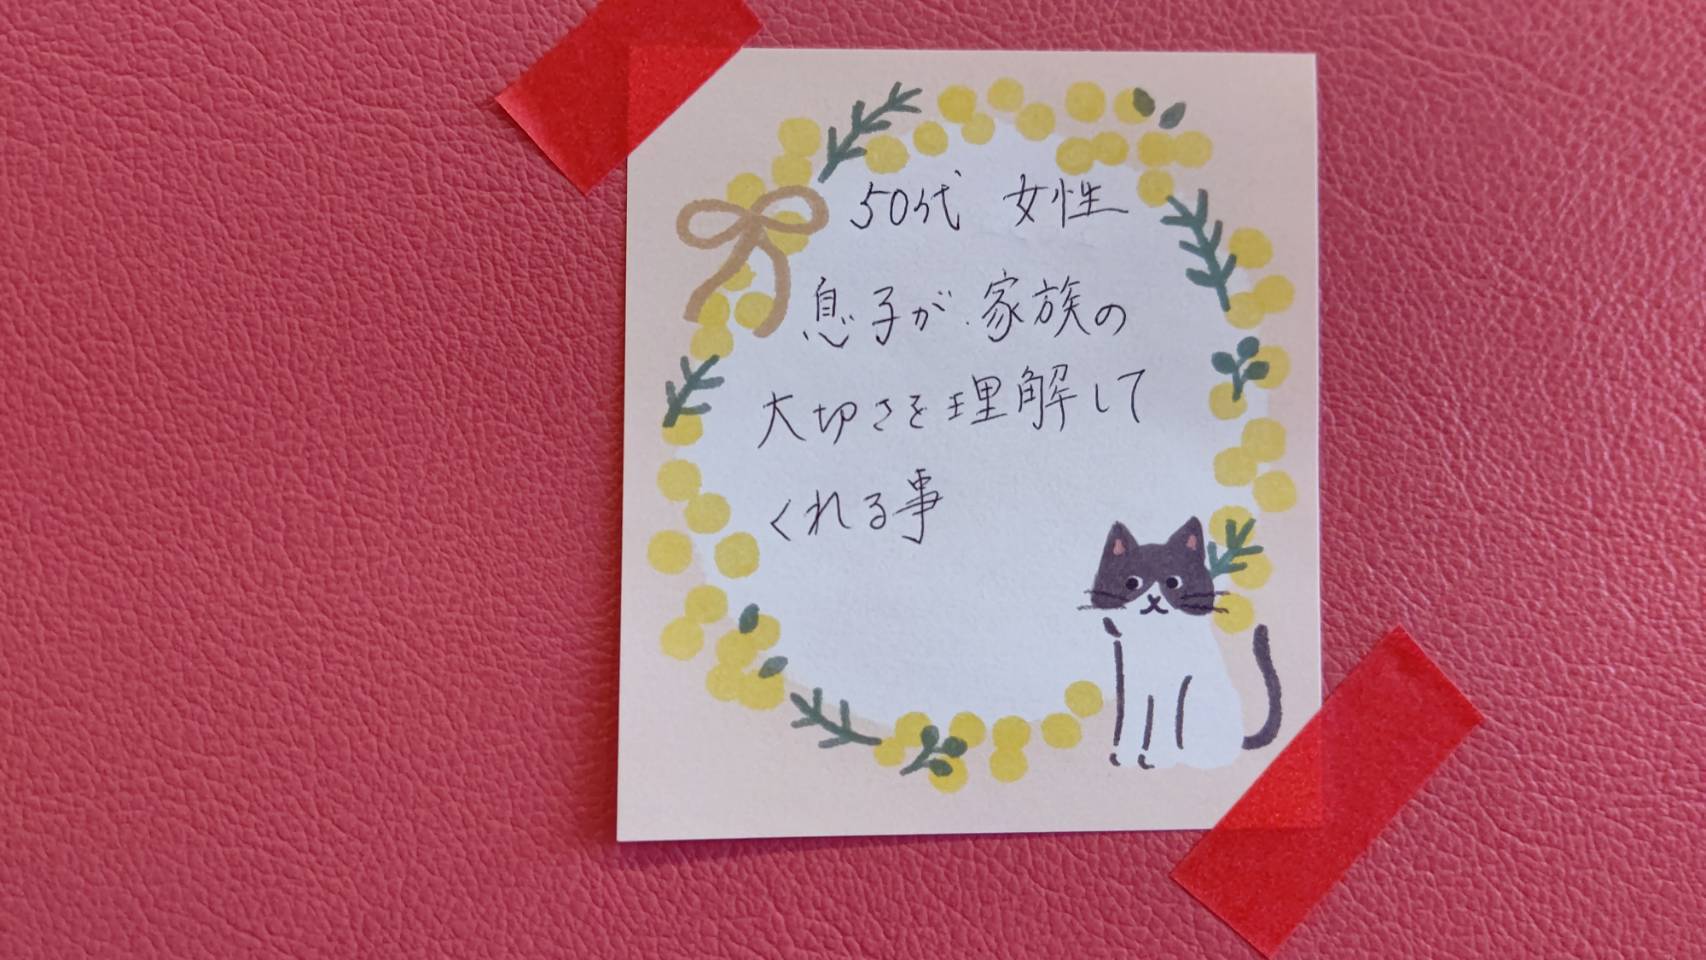 50代 女性
息子が家族の
大切さを理解して
くれる事